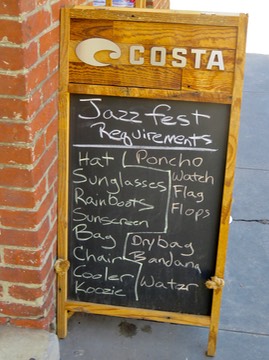 COSTA
Jazz fest
Requirements
Hat Poncho
Sunglasses Watch
Rainboots Flag
Sunscreen Flops
Bag Drybag
Chair Bandana
Cooler Water
Koozie